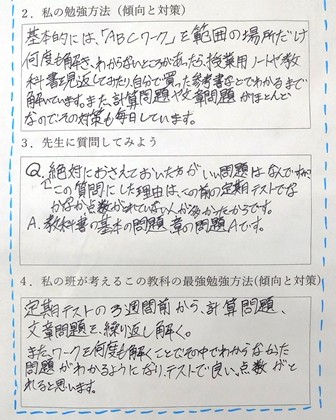 2. 私の勉強方法（傾向と対策）
基本的には、「ABCワーク」を範囲の場所だけ
何度も解き、わからないところがあったら授業用ノートや教
科書を見返してみたり、自分で買った参考書などでわかるまで
解いています。また、計算問題や文章問題がほとんど
なのでその対策も毎日しています。
3. 先生に質問してみよう
Q. 絶対におさえておいた方がいい問題はなんですか
この質問にした理由は、この前の定期テストでな
かなか点数がとれていない人が多かったからです。
A. 教科書の基本の問題、章の問題Aです。
4. 私の班が考えるこの教科の最強勉強方法(傾向と対策)
定期テストの3週間前から、計算問題、
文章問題を、繰り返し解く。
また、ワークを何度も解くことでその中でわからなかった
問題がわかるようになり、テストで良い点数がと
れると思います。